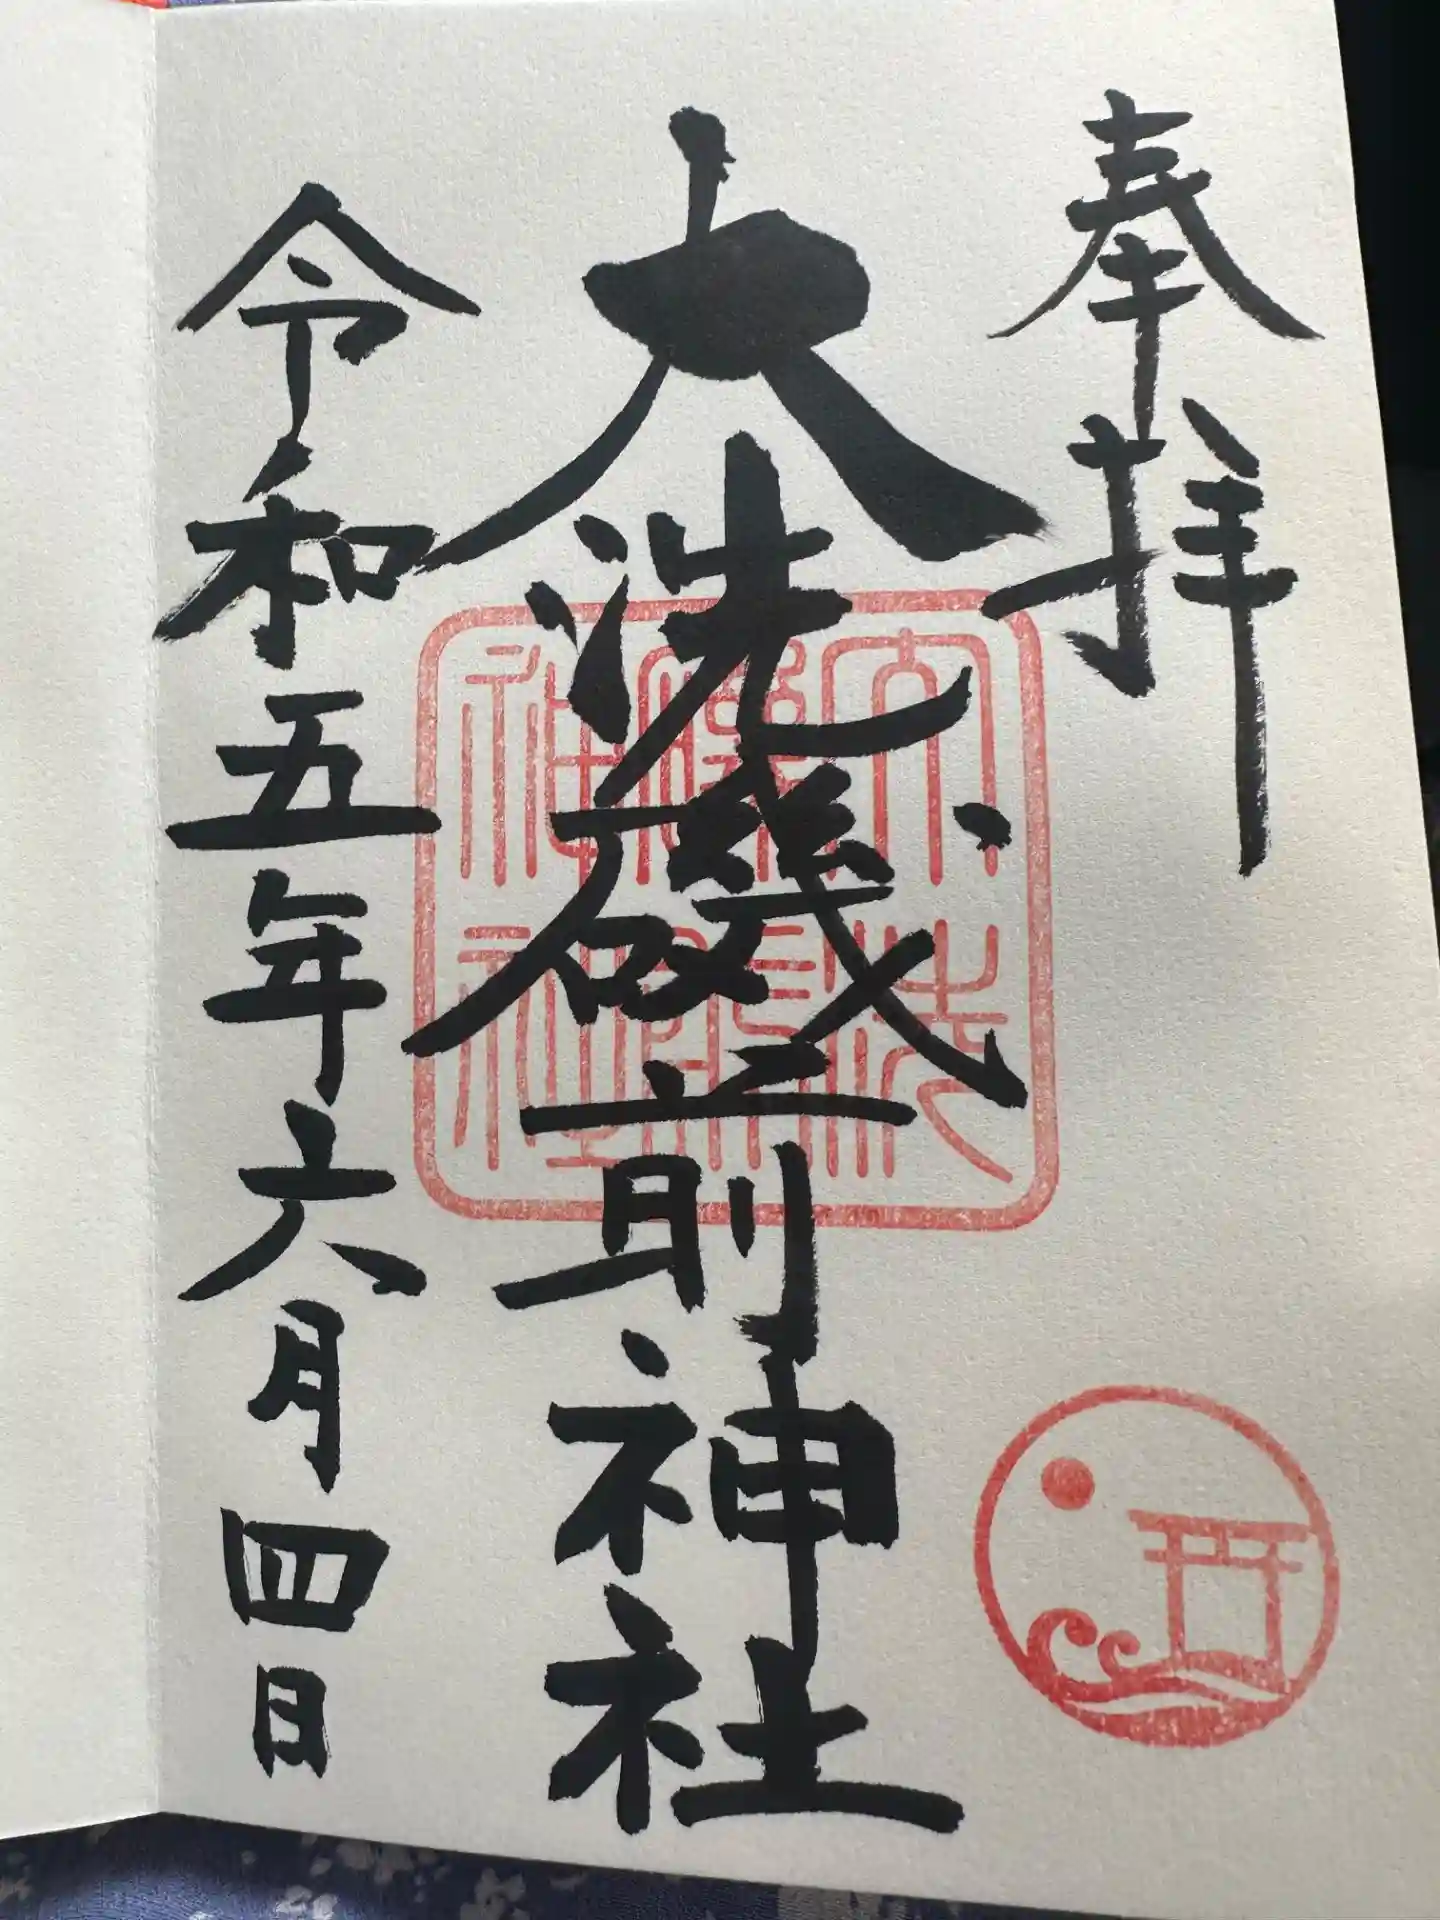 奉拝
大洗磯前神社
大洗磯前神社
令和五年六月四日